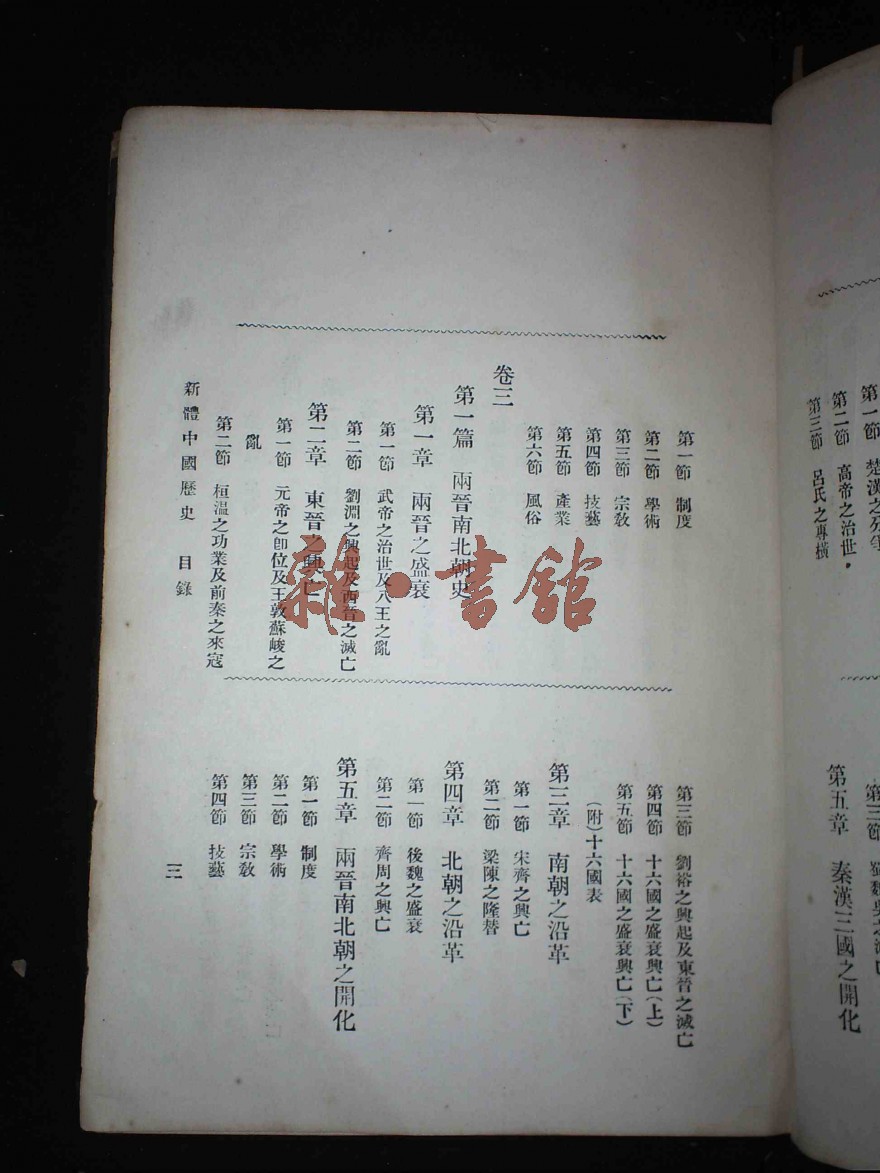 第一節 楚漢之
第二節 高帝之治世
第三節 呂氏之專橫
第三節
第五章 秦漢三國之開化
第一節 制度
第二節 學術
第三節 宗教
第四節 技藝
第五節 產業
第六節 風俗
卷三
第一篇 兩晉南北朝史
第一章 兩晉之盛衰
第一節 武帝之治世及八王之亂
第二節 劉淵之興起及西晉之滅亡
第二章 東晉之興亡
第一節 元帝之卽位及王敦蘇峻之
亂
第二節 桓温之功業及前秦之來寇
第三節 劉裕之興起及東晉之滅亡
第四節 十六國之盛衰興亡(上)
第五節 十六國之盛衰興亡(下)
(附)十六國表
第三章 南朝之沿革
第一節 宋齊之興亡
第二節 梁陳之隆替
第四章 北朝之沿革
第一節 後魏之盛衰
第二節 齊周之興亡
第五章 兩晉南北朝之開化
第一節 制度
第二節 學術
第三節 宗教
第四節 技藝
新體中國歷史 目錄
三
雜·書館